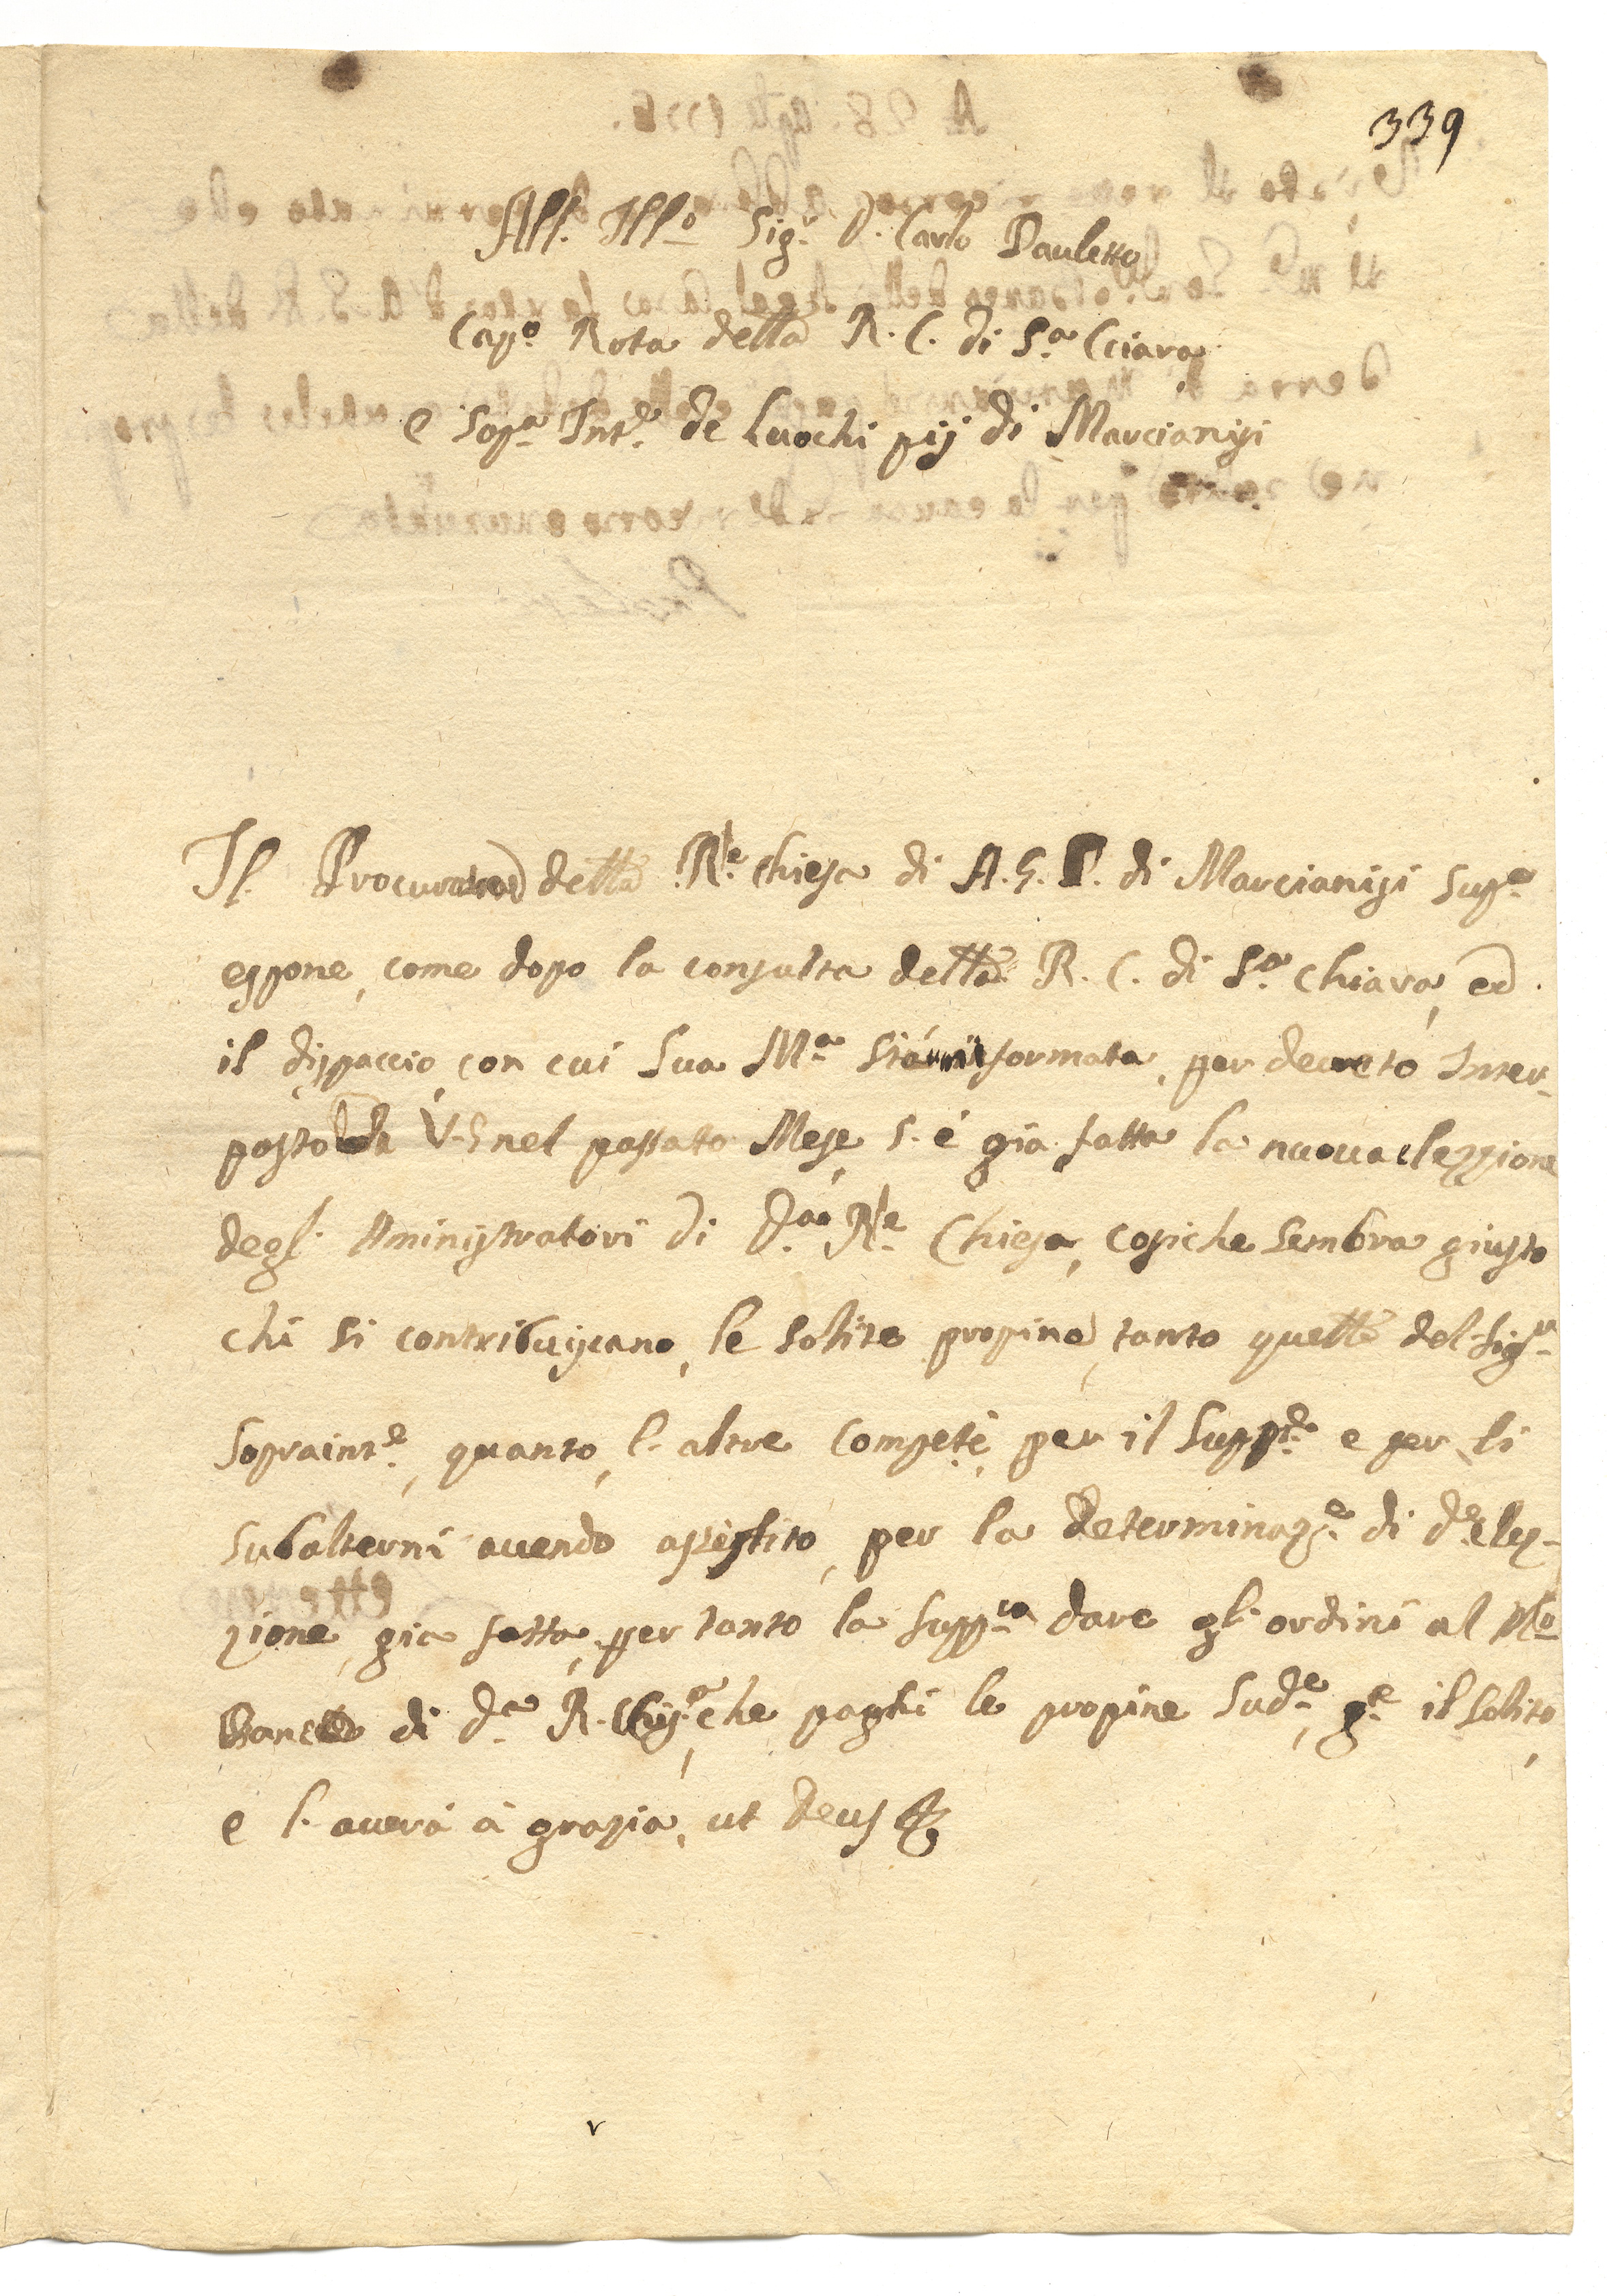 339
All. Ill.o Sig.r D. Carlo Pauletto
Cap.o Rota della R. C. di S.a Cciara
e Sop.a Int.e de Luochi pij di Marcianisi
Il Procurator della R.le Chiesa di A. G. P. di Marcianisi sup.e
espone, come dopo la consulta della R. C. di S.a Chiara, ed
il dispaccio, con cui Sua M.a formata, per decreto Inter-
posto da V.S nel passato Mese, s. è già fatta la nuova elezzione
degl. Aministratori di D.a R.le Chiesa, cosiche sembra giusto
chi si contribuiscano, le solite propine, tanto quella del Sig.r
Sopraint.e, quanto, l. altre Compete, per il Supp.te e per li
subalterni avendo assistito, per la determinaz.e di d.a elez-
zione, gia fatta, per tanto la supp.ca dare gl. ordini al
di d.a R. Chies.a, che paghi le propine sud.e, g.e il solito,
e l. averà à grazia, ut Deus &